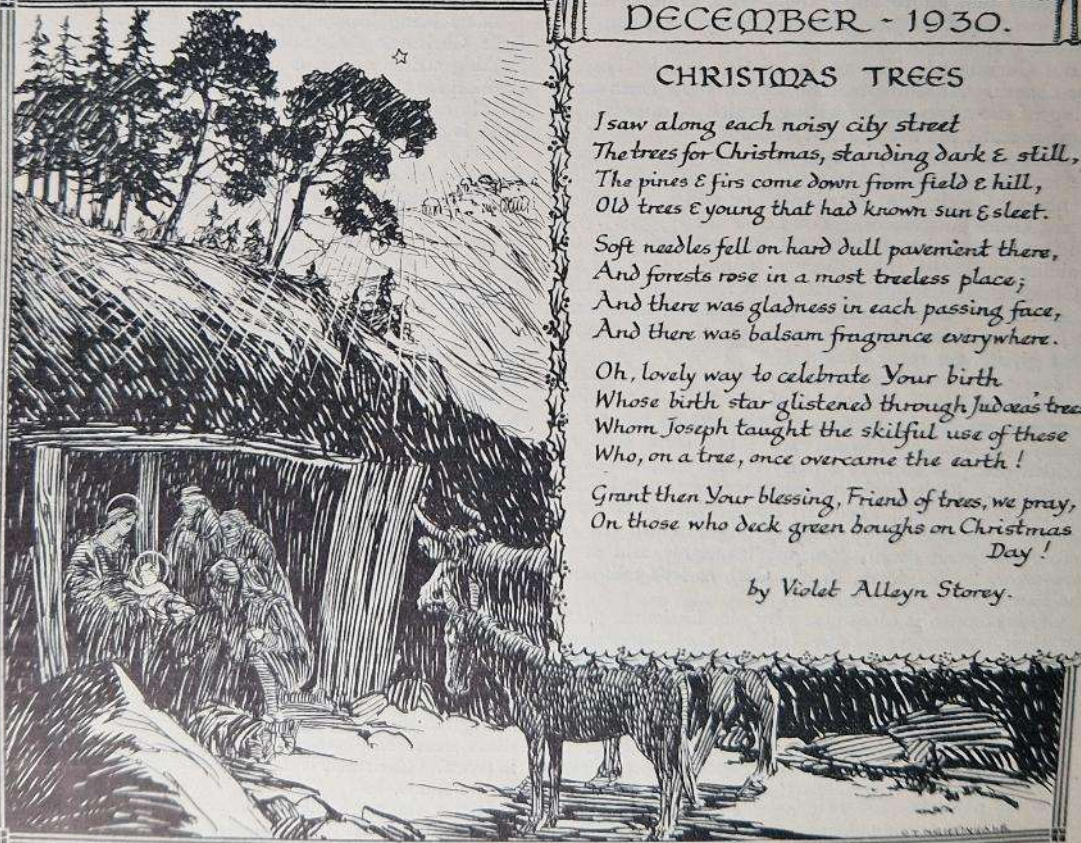 DECEMBER - 1930.
CHRISTMAS TREES
I saw along each noisy city street
The trees for Christmas, standing dark & still,
The pines & firs come down from field & hill,
Old trees & young that had known sun & sleet.
Soft needles fell on hard dull pavement there,
And forests rose in a most treeless place;
And there was gladness in each passing face,
And there was balsam fragrance everywhere.
Oh, lovely way to celebrate Your birth
Whose birth star glistened through Judæa's tree
Whom Joseph taught the skilful use of these
Who, on a tree, once overcame the earth!
Grant then Your blessing, Friend of trees, we pray,
On those who deck green boughs on Christmas
Day!
by Violet Alleyn Storey.